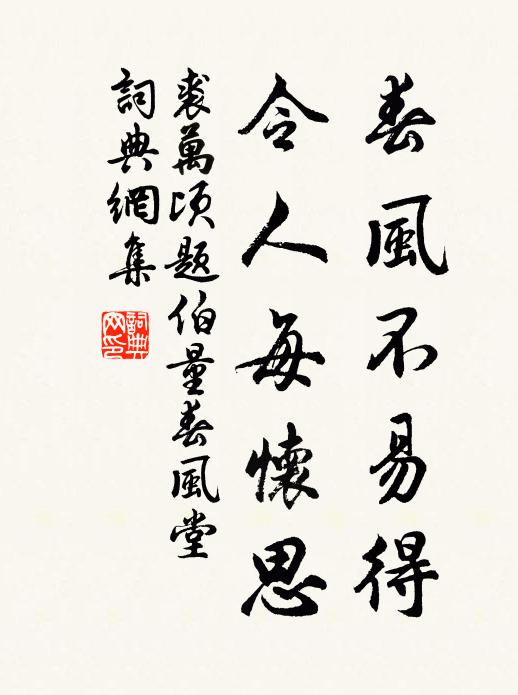 春風不易得
令人每懷思
裘萬頃題伯量春風堂
詞典網集
詞典
网印